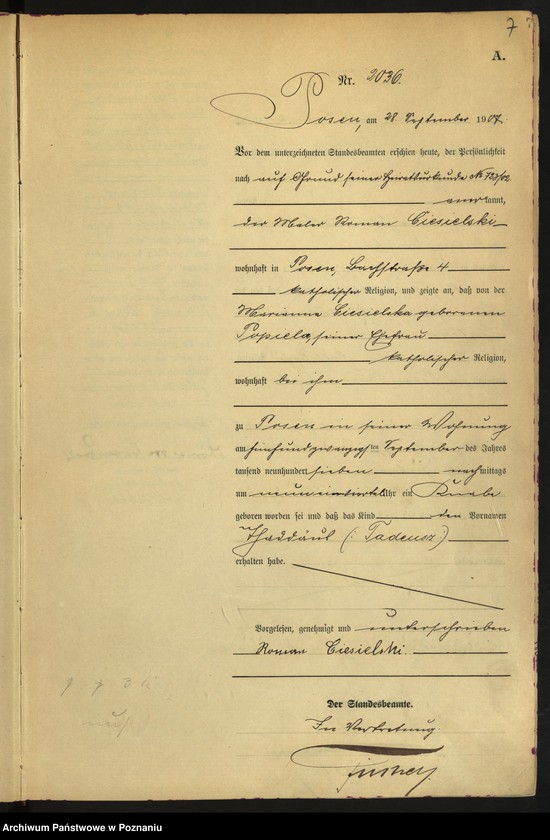 7
A.
Nr. 2036.
Posen, am 28. September 1907.
Vor dem unterzeichneten Standesbeamten erschien heute, der Persönlichkeit
nach auf Grund seiner Heiratsurkunde №
anerkannt,
der Maler Roman Ciesielski
wohnhaft in Posen, Bachstraße 4
katholischer Religion, und zeigte an, daß von der
Marianna Ciesielska geborenen
Popiela, seiner Ehefrau
katholischer Religion,
wohnhaft bei ihm
zu Posen in seiner Wohnung
am fünfundzwanzigsten September des Jahres
tausend neunhundert sieben nachmittags
um neuneinviertel Uhr ein Knabe
geboren worden sei und daß das Kind den Vornamen
Thaddäus (: Tadeusz :)
erhalten habe.
Vorgelesen, genehmigt und unterschrieben
Roman Ciesielski.
Der Standesbeamte.
In Vertretung.
Archiwum Państwowe w Poznaniu